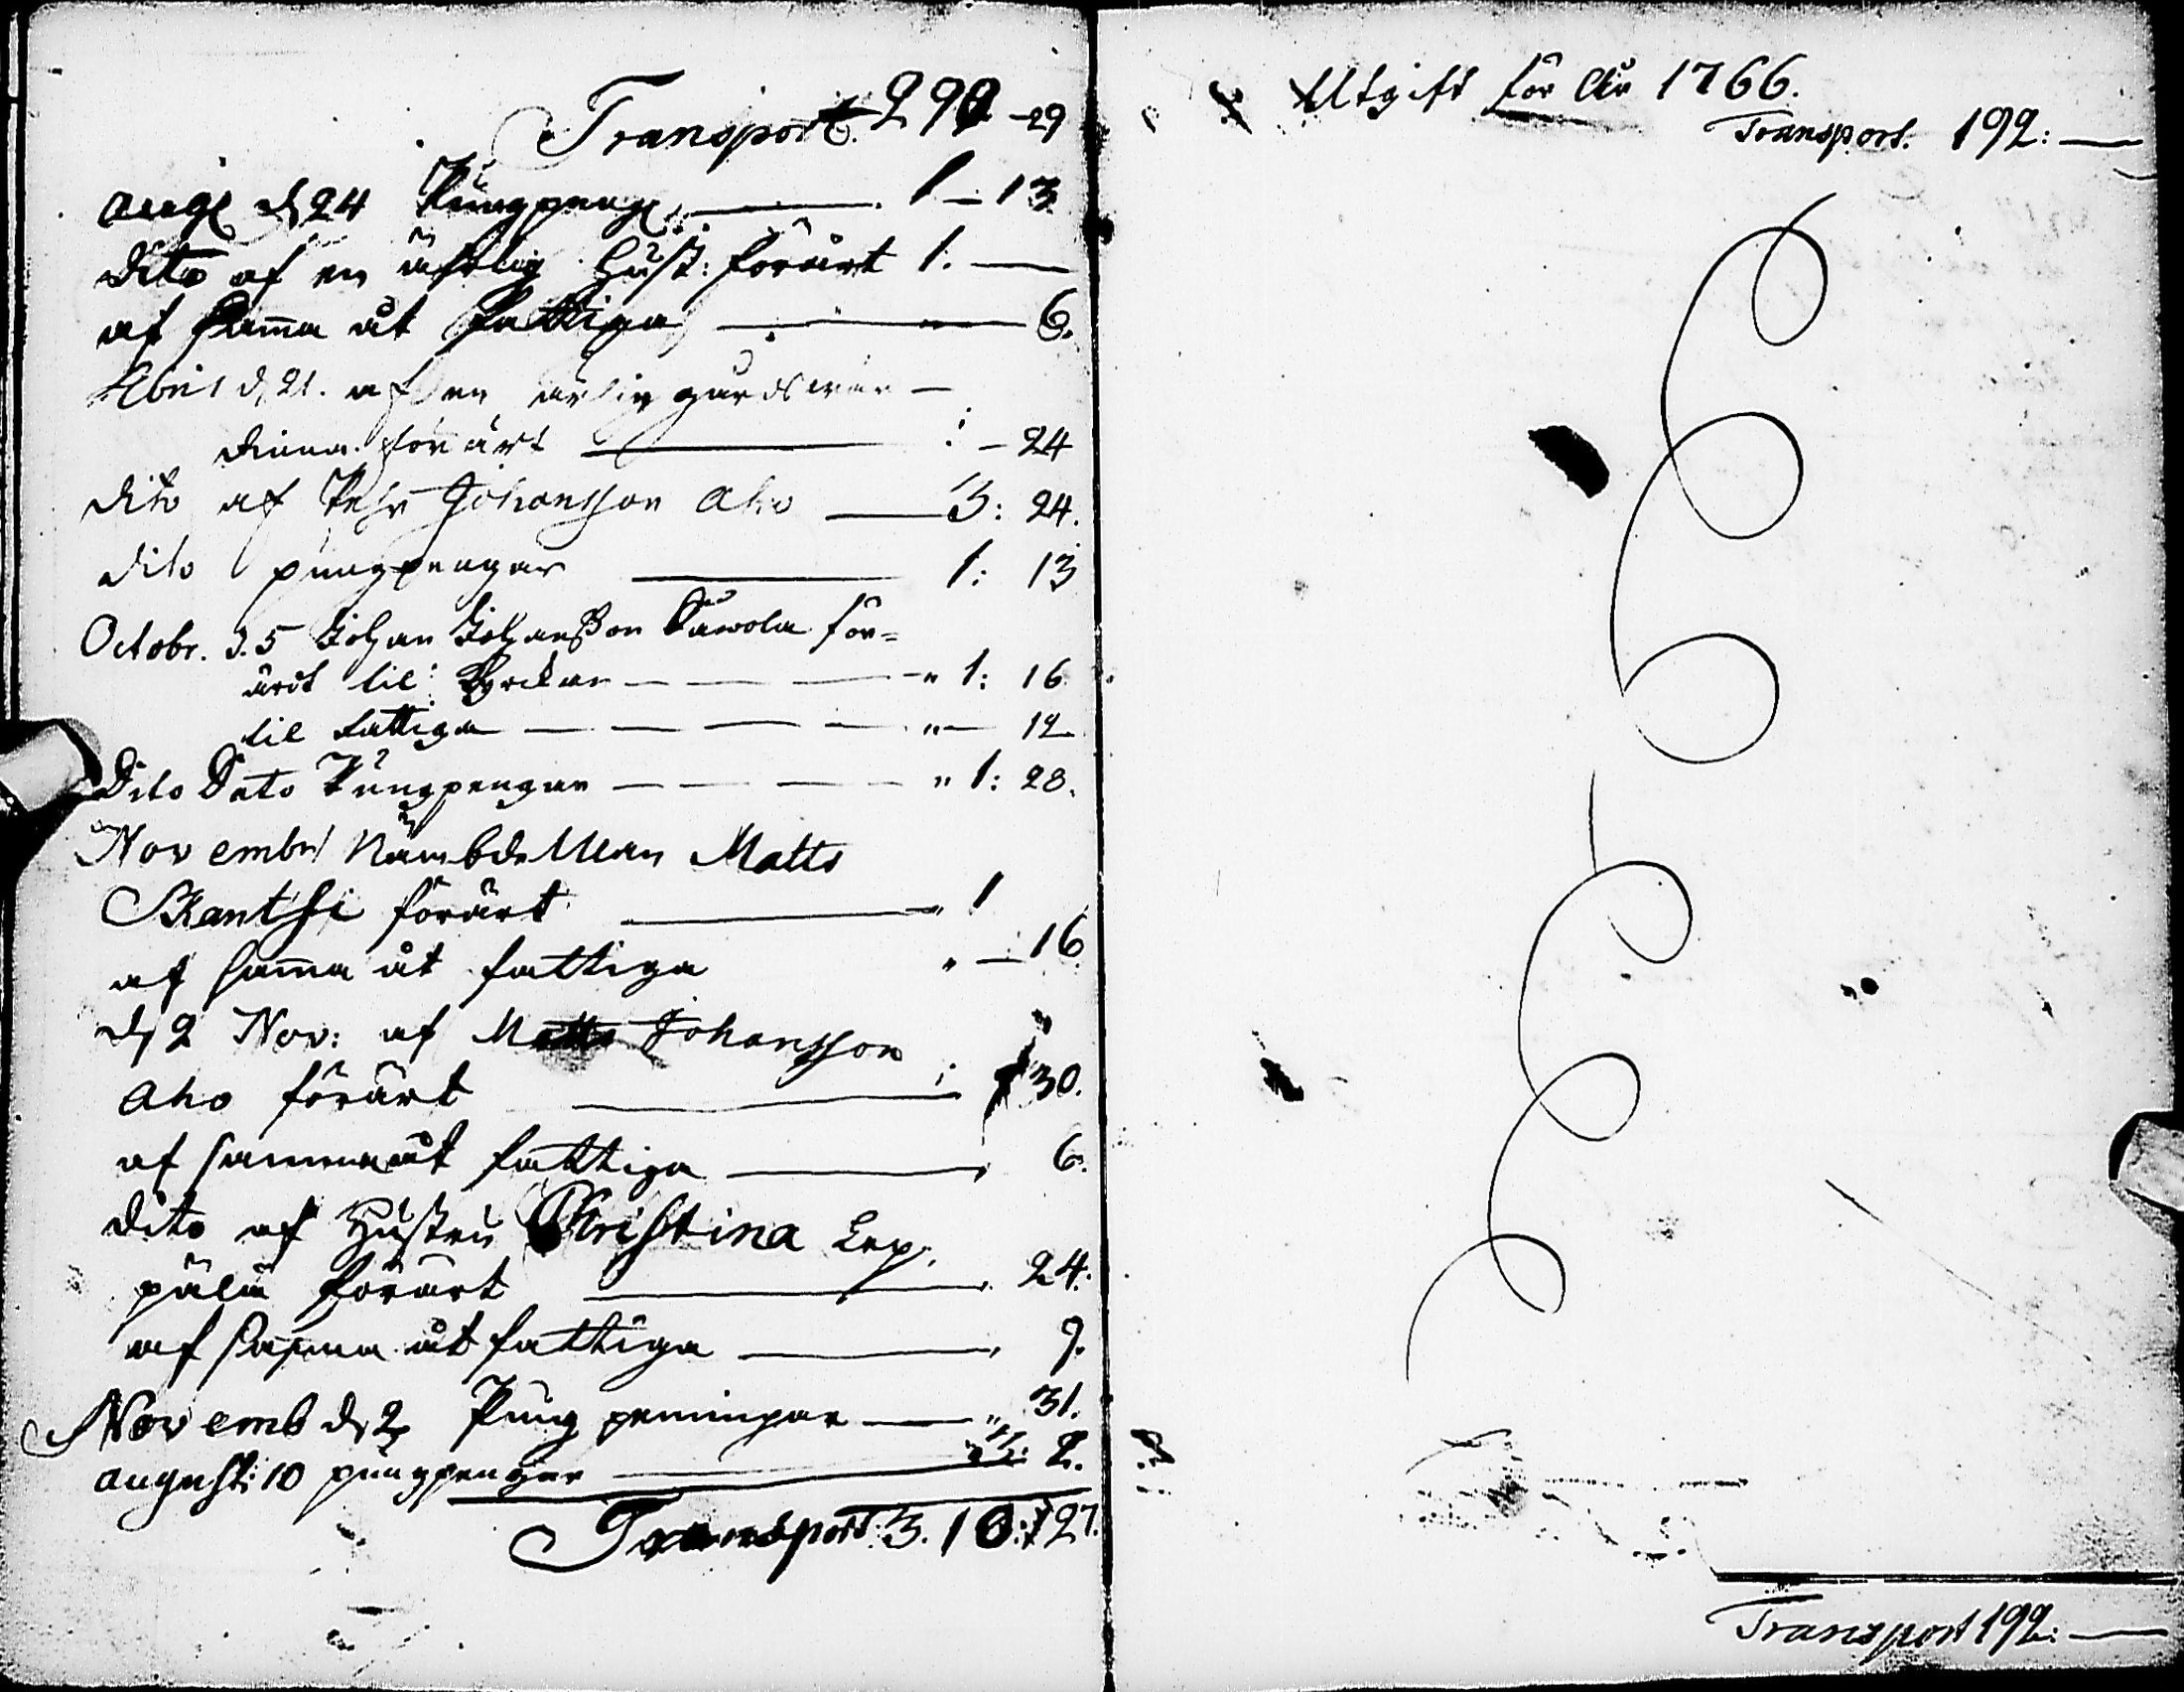 Transport. 299 - 29
Aug: d 24 Pungpeng: 1 - 13
Dito af en ährlig Hust: förärt 1. —
af sama åt fattiga 6.
d 21. af en ärlig gårdswär-
dinna förärt : - 24
dito af Pehr Johansson Aho 3: 24.
dito pungpengar 1: 13
Octobr. d. 5 Johan Johansson Sawola för=
ärdt til Kyrckan " 1: 16
til fattiga " — 12
Dito Dato Pungpengar " 1: 28.
Novembr Nämbde Man Matts
Skantsi förärt " 1
af sama åt fattiga " —: 16
d 2 Nov: af Matts Johansson
Aho förärt : 30.
af samma åt fattiga 6.
dito af Hustru Christina Lep,
pälä förärt 24.
af samma åt fattiga 9.
Novemb d 2 Pung peningar " 31.
august: 10 pungpengar 2.
Transport: 3.10: 27.
Utgift för År 1766.
Transport. 192: —
Transport 192: —